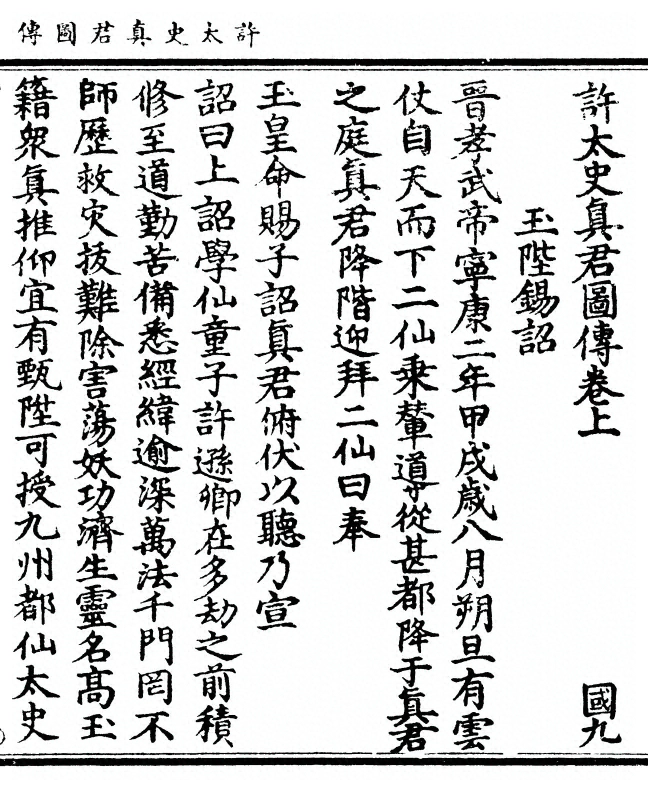 許太史真君圖傳
許太史眞君圖傳卷上
國九
玉陛錫詔
晉孝武帝寧康二年甲戌歲八月朔旦有雲
仗自天而下二仙乗輦道寸從甚都降于眞君
之庭眞君降階迎拜二仙曰奉
玉皇命賜子詔眞君俯伏以聽乃宣
詔曰上詔學仙童子許遜卿在多劫之前積
修至道勤苦備悉經緯逾深萬法千門罔不
師歷救灾拔難除害蕩妖功濟生靈名髙玉
籍衆眞推仰宜有甄陞可授九州都仙太史